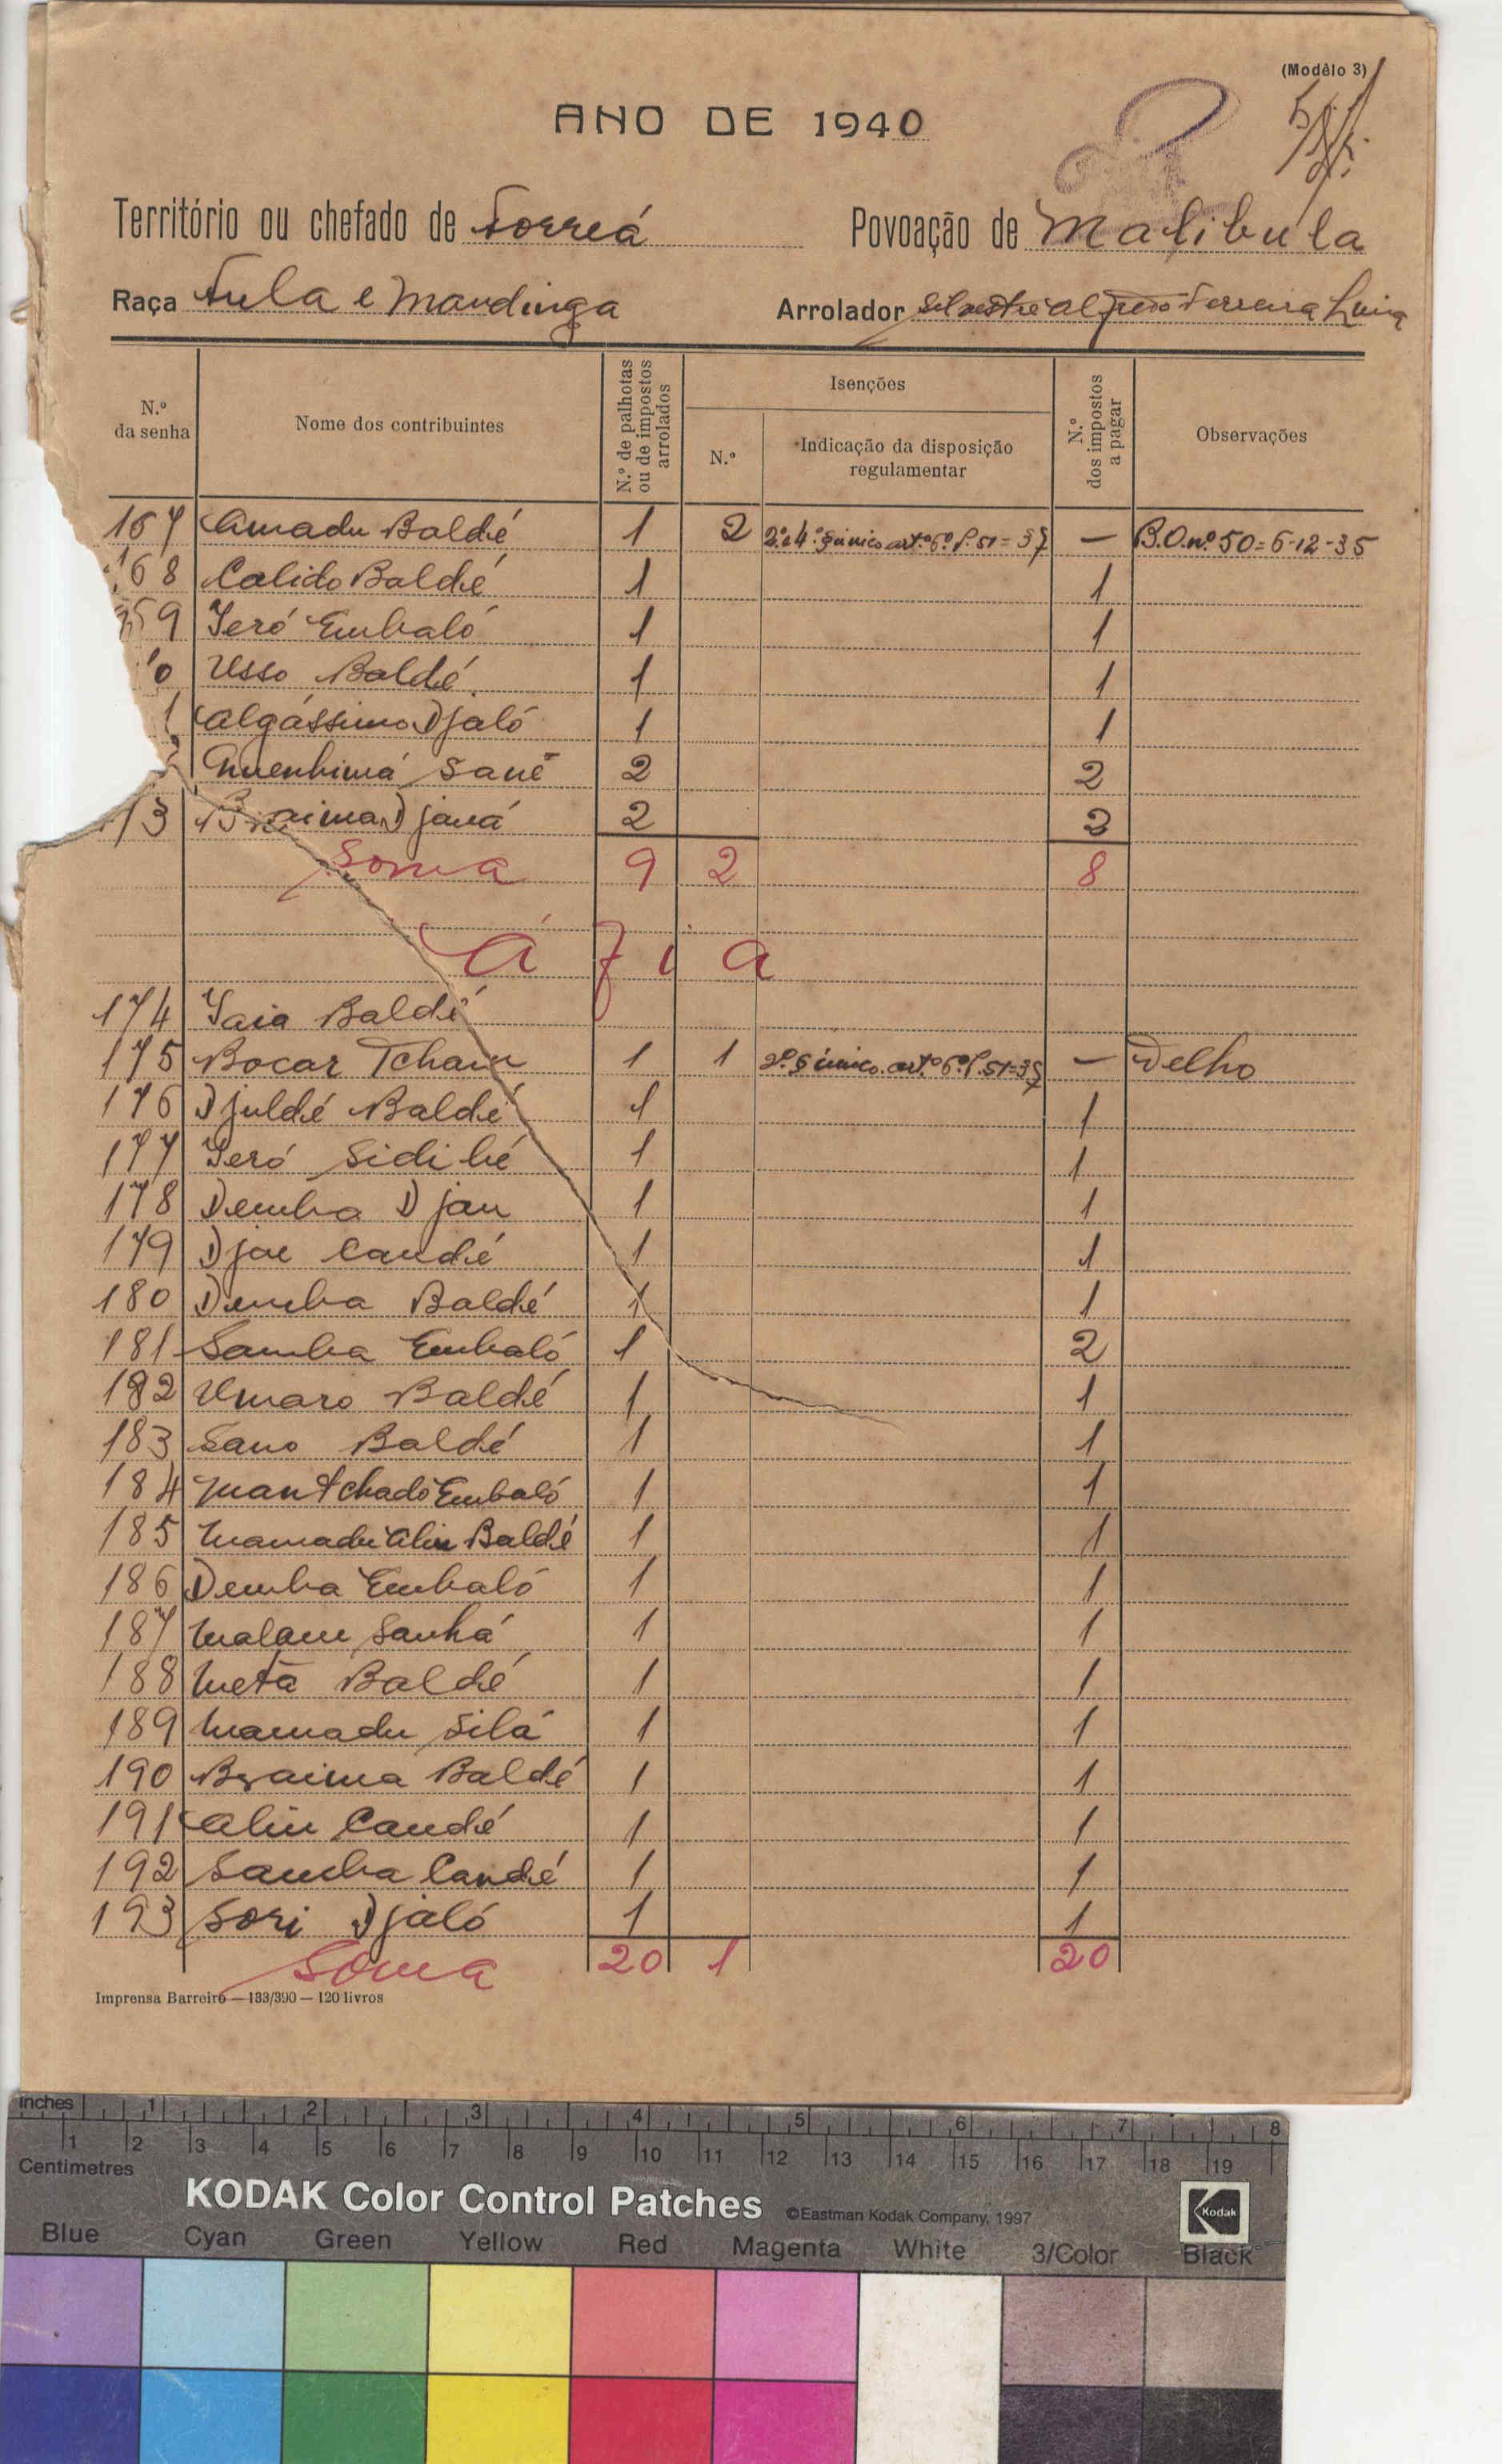 (Modêlo 3)
ANO DE 1940
Território ou chefado de Forreá Povoação de Mafibula
Raça Fula e Mandinga Arrolador Silvestre Alfredo Ferreira
N.º da senha
Nome dos contribuintes
N.º de palhotas ou de impostos arrolados
Isenções
N.º
Indicação da disposição regulamentar
N.º dos impostos a pagar
Observações
167 Amadu Baldé 1 2 2º e 4º § único artº 6º P. 51=37 — B.O. nº 50=6-12-35
168 Calido Baldé 1 1
69 Jeró Embaló 1 1
0 Usso Baldé 1 1
1 Algássimo Djaló 1 1
Sané 2 2
73 Braima Djaná 2 2
Soma 9 2 8
Áfia
174 Iaia Baldé
175 Bocar Tcham 1 1 2º § único artº 6º P. 51=37 — Velho
176 Djuldé Baldé 1 1
177 Jeró Sidibé 1 1
178 Demba Djau 1 1
179 Djae Candé 1 1
180 Demba Baldé 1 1
181 Samba Embaló 1 2
182 Umaro Baldé 1 1
183 Sano Baldé 1 1
184 Embaló 1 1
185 Mamadu Aliu Baldé 1 1
186 Demba Embaló 1 1
187 Malam Sanhá 1 1
188 Meta Baldé 1 1
189 Mamadu Silá 1 1
190 Braima Baldé 1 1
191 Aliu Candé 1 1
192 Samba Candé 1 1
193 Sori Djaló 1 1
Soma 20 1 20
Imprensa Barreiro — 133/390 — 120 livros
inches 1 2 3 4 5 6 7 8
1 2 3 4 5 6 7 8 9 10 11 12 13 14 15 16 17 18 19
Centimetres
KODAK Color Control Patches ©Eastman Kodak Company, 1997 Kodak
Blue Cyan Green Yellow Red Magenta White 3/Color Black